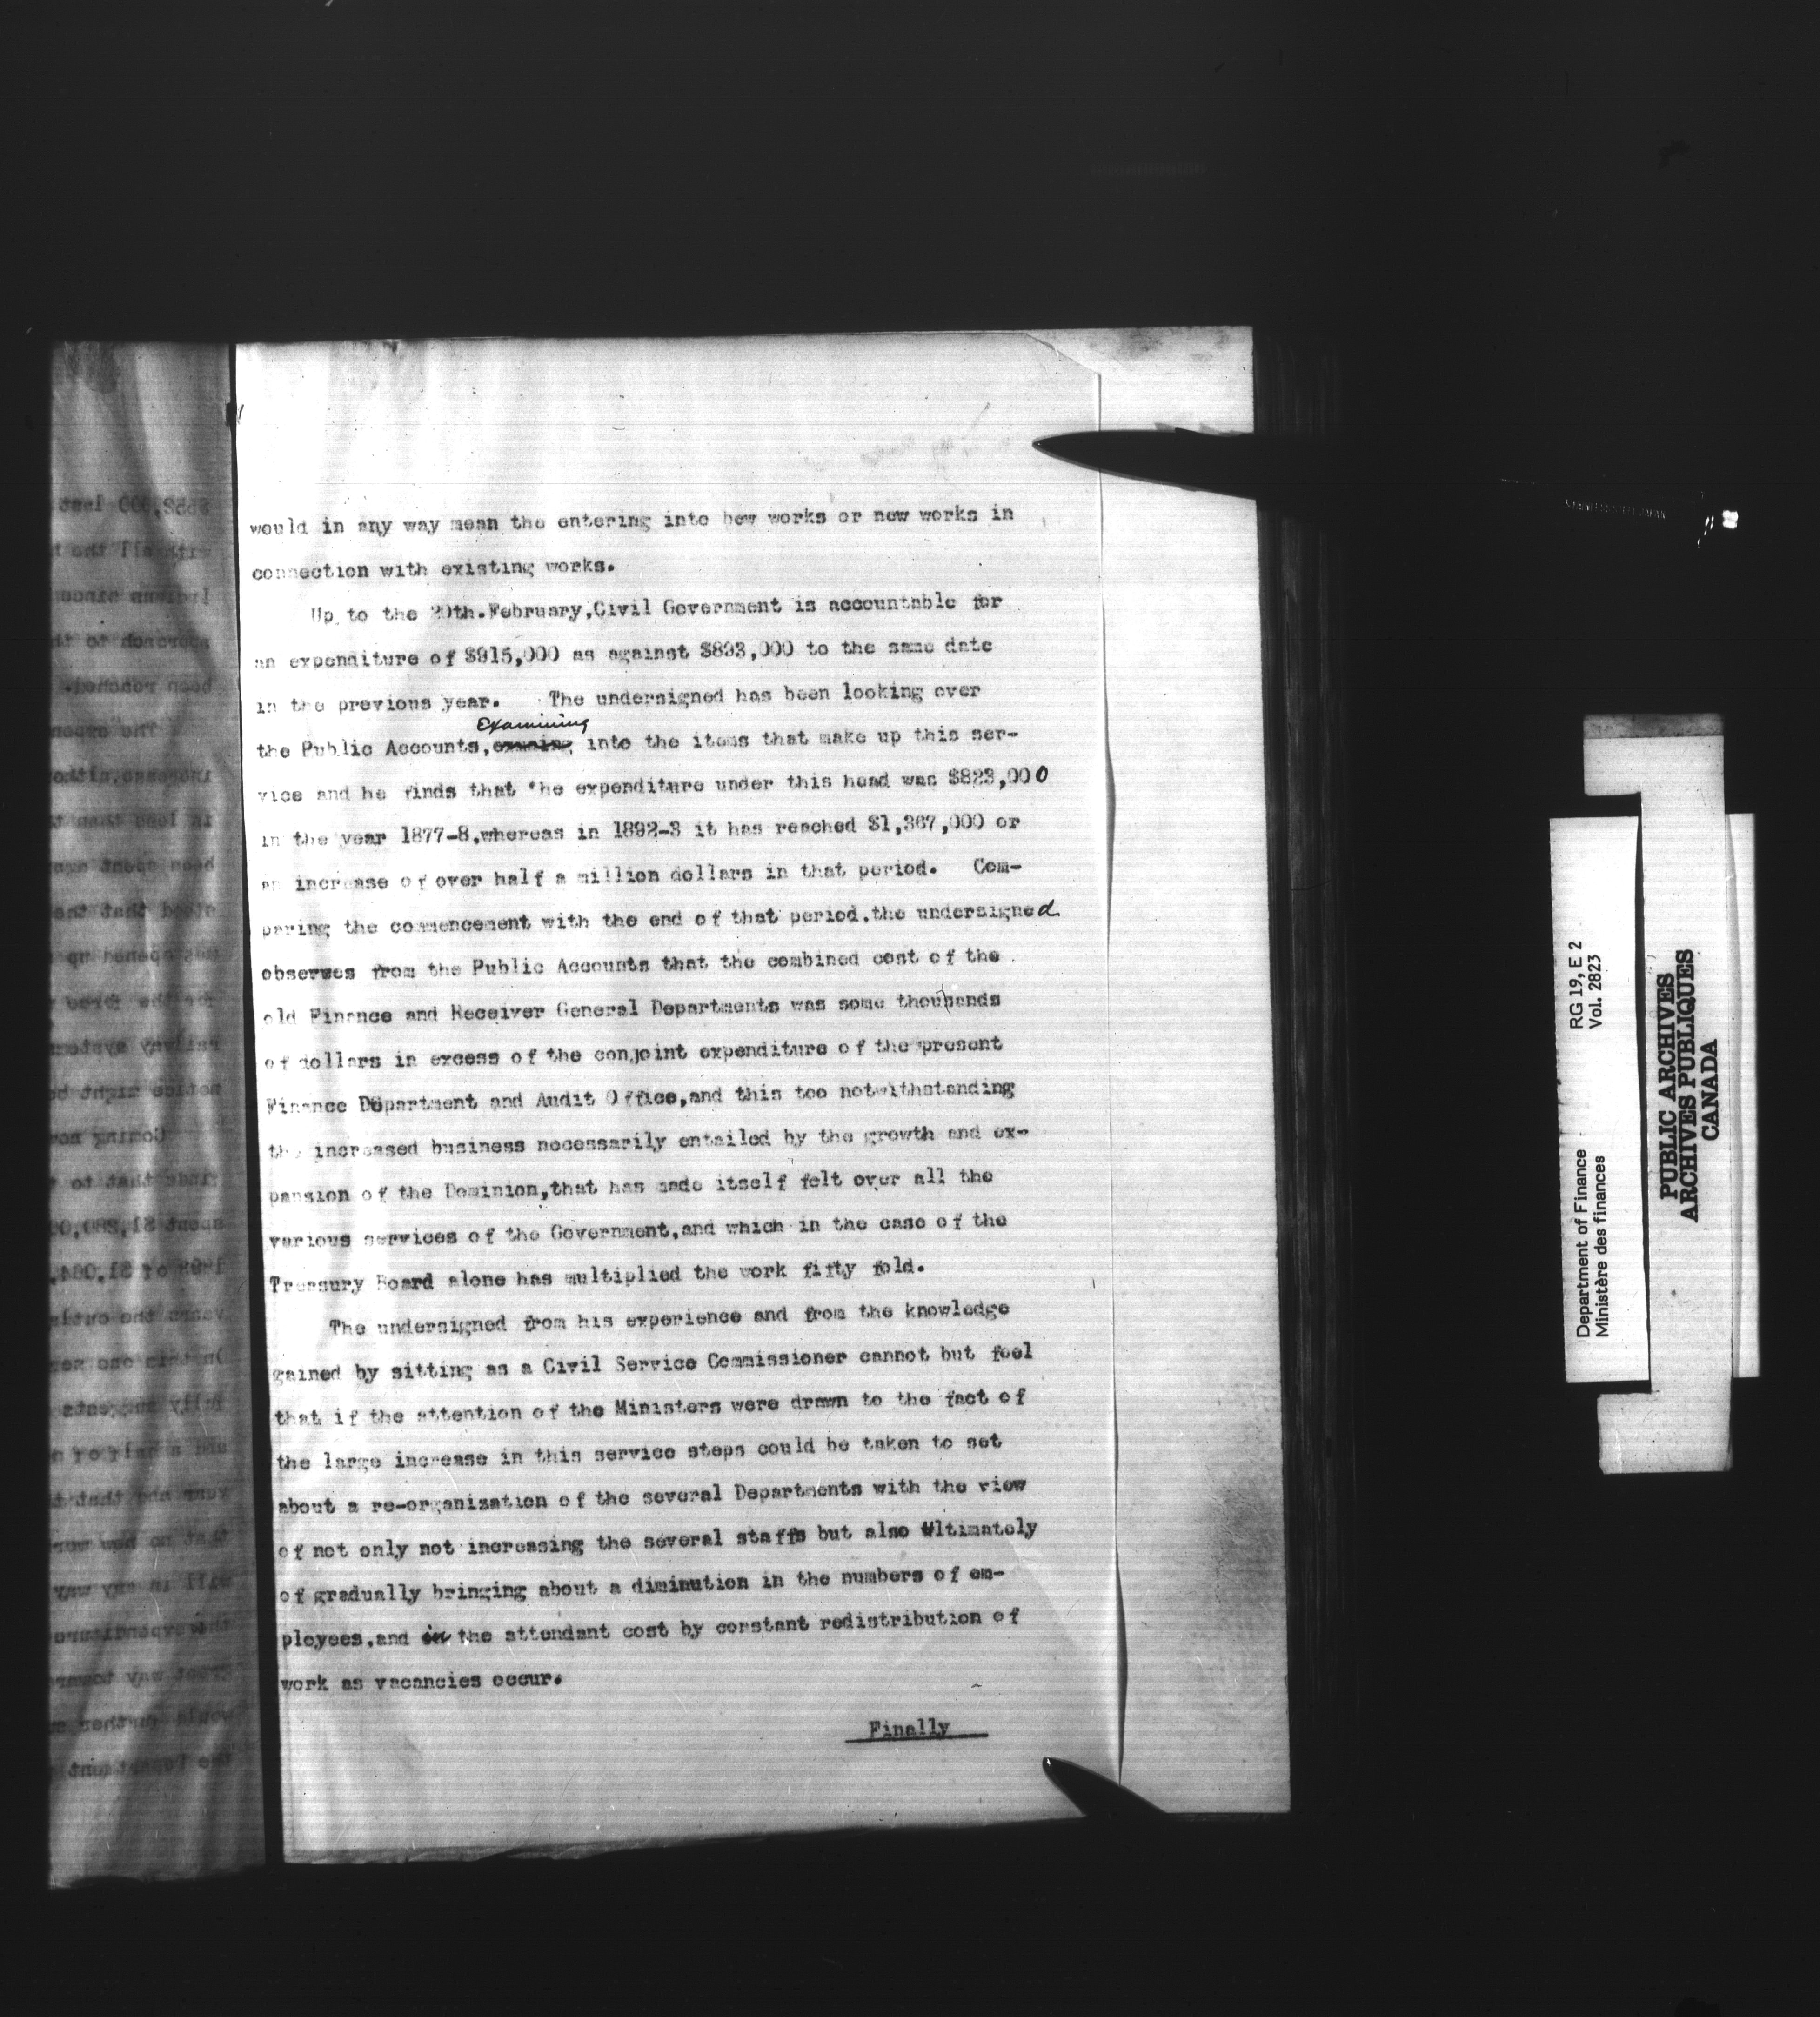 would in any way mean the entering into new works or new works in
connection with existing works.
Up to the 20th.February,Civil Government is accountable for
an expenditure of $915,000 as against $893,000 to the same date
in the previous year. The undersigned has been looking over
Examining
the Public Accounts, into the items that make up this ser-
vice and he finds that the expenditure under this head was $823,000
in the year 1877-8,whereas in 1892-3 it has reached $1,367,000 or
an increase of over half a million dollars in that period. Com-
paring the commencement with the end of that period,the undersigned
observes from the Public Accounts that the combined cost of the
old Finance and Receiver General Departments was some thousands
of dollars in excess of the conjoint expenditure of the present
Finance Department and Audit Office,and this too notwithstanding
the increased business necessarily entailed by the growth and ex-
pansion of the Dominion,that has made itself felt over all the
various services of the Government,and which in the case of the
Treasury Board alone has multiplied the work fifty fold.
The undersigned from his experience and from the knowledge
gained by sitting as a Civil Service Commissioner cannot but feel
that if the attention of the Ministers were drawn to the fact of
the large increase in this service steps could be taken to set
about a re-organization of the several Departments with the view
of not only not increasing the several staffs but also ultimately
of gradually bringing about a diminution in the numbers of em-
ployees,and in the attendant cost by constant redistribution of
work as vacancies occur.
Finally
Department of Finance RG 19, E 2
Ministère des finances Vol. 2823
PUBLIC ARCHIVES
ARCHIVES PUBLIQUES
CANADA